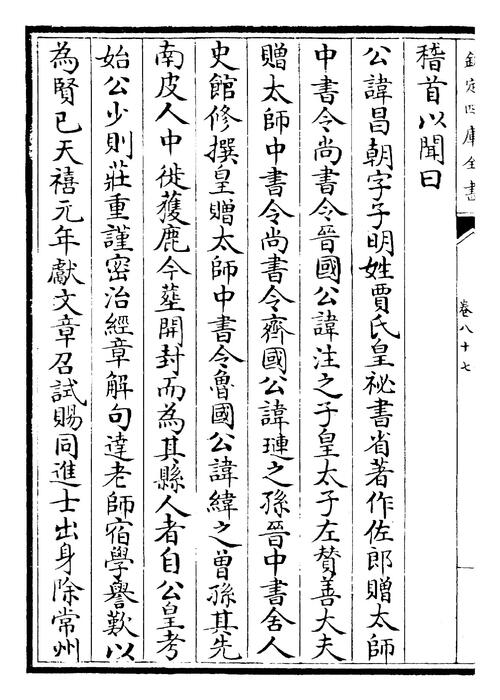 欽定四庫全書
卷八十七
稽首以聞曰
公諱昌朝字子明姓賈氏皇祕書省著作佐郎贈太師
中書令尚書令晉國公諱注之子皇太子左贊善大夫
贈太師中書令尚書令齊國公諱璉之孫晉中書舍人
史館修撰皇贈太師中書令魯國公諱緯之曾孫其先
南皮人中徙獲鹿今葬開封而為其縣人者自公皇考
始公少則莊重謹密治經章解句達老師宿學譽歎以
為賢已天禧元年獻文章召試賜同進士出身除常州